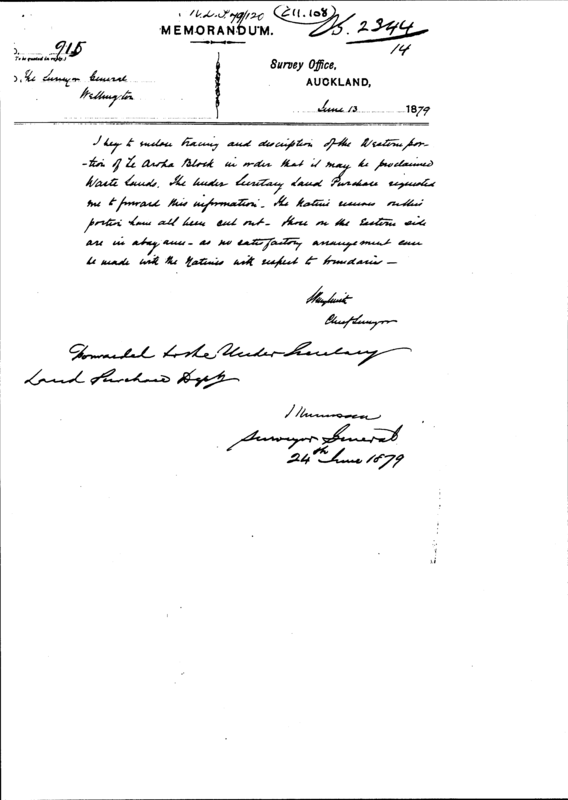 N.L.P. 79/120 C11.108 S. 2344
14
MEMORANDUM.
915
(To be quoted in reply.)
Survey Office,
AUCKLAND,
The Surveyor General
Wellington
June 13 1879
I beg to enclose tracing and description of the Western por-
-tion of Te Aroha Block in order that it may be proclaimed
Waste Lands. The Under Secretary Land Purchase requested
me to forward this information - The Native reserves on this
portion have all been cut out - those on the Eastern side
are in abeyance - as no satisfactory arrangement can
be made with the Natives with respect to boundaries -
Chief Surveyor
Forwarded to the Under Secretary
Land Purchase Dept
Surveyor General
24th June 1879